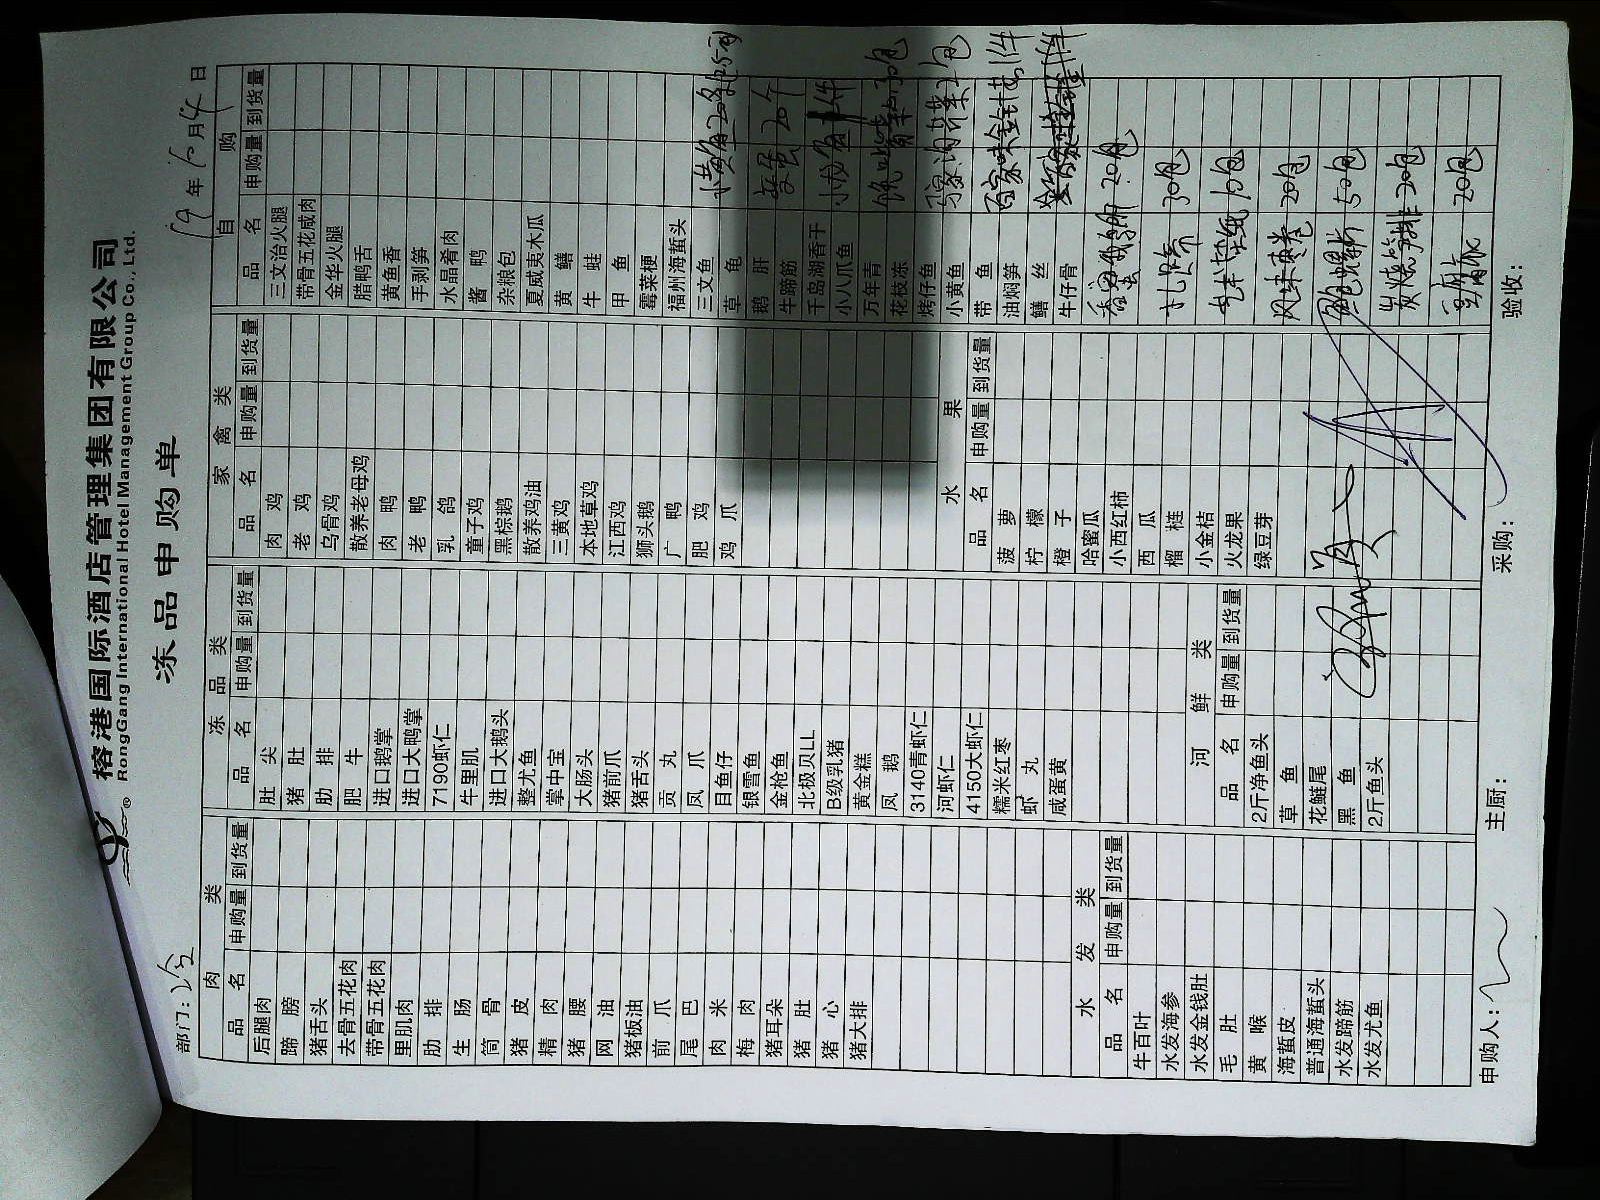 榕港国际酒店管理集团有限公司
RongGang International Hotel Management Group Co., Ltd.
冻品申购单
部门: 19年6月4日
肉类
品名 申购量 到货量
后腿肉
蹄膀
猪舌头
去骨五花肉
带骨五花肉
里肌肉
肋排
生肠
筒骨
猪皮
精肉
猪腰
网油
猪板油
前爪
尾巴
肉米
梅肉
猪耳朵
猪肚
猪心
猪大排
水发类
品名 申购量 到货量
牛百叶
水发海参
水发金钱肚
毛肚
黄喉
海蜇皮
普通海蜇头
水发蹄筋
水发尤鱼
冻品类
品名 申购量 到货量
肚尖
猪肚
肋排
肥牛
进口鹅掌
进口大鸭掌
7190虾仁
牛里肌
进口大鹅头
整尤鱼
掌中宝
大肠头
猪前爪
猪舌头
贡丸
凤爪
目鱼仔
银雪鱼
金枪鱼
北极贝LL
B级乳猪
黄金糕
凤鹅
3140青虾仁
河虾仁
4150大虾仁
糯米红枣
虾丸
咸蛋黄
河鲜类
品名 申购量 到货量
2斤净鱼头
草鱼
花鲢尾
黑鱼
2斤鱼头
家禽类
品名 申购量 到货量
肉鸡
老鸡
乌骨鸡
散养老母鸡
肉鸭
老鸭
乳鸽
童子鸡
黑棕鹅
散养鸡油
三黄鸡
本地草鸡
江西鸡
狮头鹅
广鸭
肥鸡
鸡爪
水果
品名 申购量 到货量
菠萝
柠檬
橙子
哈蜜瓜
小西红柿
西瓜
榴梿
小金桔
火龙果
绿豆芽
自购
品名 申购量 到货量
三文治火腿
带骨五花咸肉
金华火腿
腊鸭舌
黄鱼香
手剥笋
水晶肴肉
酱鸭
杂粮包
夏威夷木瓜
黄鳝
牛蛙
甲鱼
霉菜梗
福州海蜇头
三文鱼
草龟
鹅肝
牛蹄筋
千岛湖香干
小八爪鱼
万年青
花枝冻
烤仔鱼
小黄鱼
带鱼
油焖笋
鳝丝
牛仔骨
20个
30包
2包
金针菇1件
20包
扎蹄 30包
10包
20包
50包
炭烧 20包
20包
申购人: 主厨: 采购: 验收: